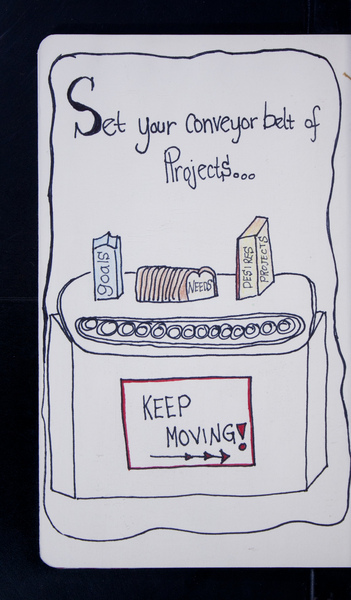 Set your Conveyor belt of
Projects...
goals
NEEDS
DESIRES
PROJECTS
KEEP
MOVING!